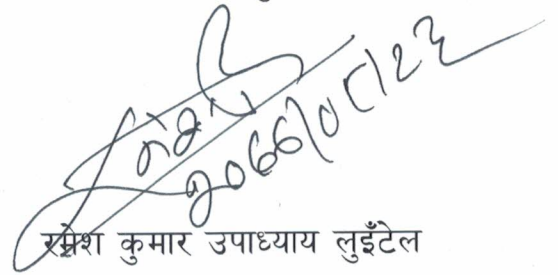 २०६६/०८/२३
रमेश कुमार उपाध्याय लुइँटेल